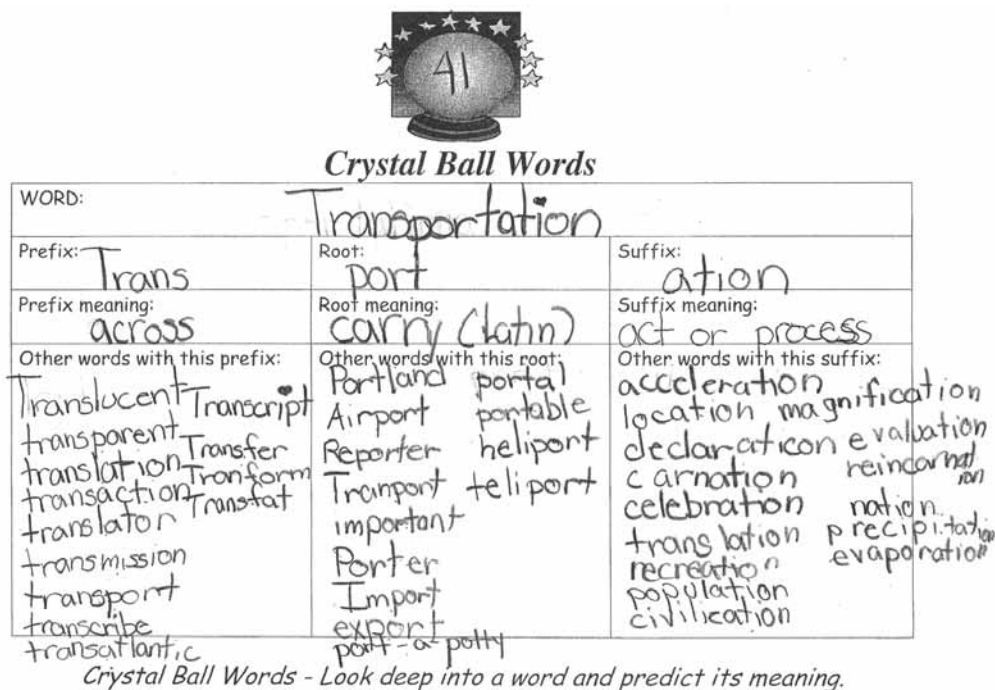 41
Crystal Ball Words
WORD:
Transportation
Prefix:
Trans
Root:
port
Suffix:
ation
Prefix meaning:
across
Root meaning:
carry (Latin)
Suffix meaning:
act or process
Other words with this prefix:
Translucent Transcript
transparent Transfer
translation Tranform
transaction Transtat
translator
transmission
transport
transcribe
transatlantic
Other words with this root:
Portland portal
Airport portable
Reporter heliport
Tranport teliport
important
Porter
Import
export
port-a-potty
Other words with this suffix:
acceleration
location magnification
declaraticon evaluation
carnation reincarnat
ion
celebration nation
translation precipitation
recreation evaporation
population
civilication
Crystal Ball Words - Look deep into a word and predict its meaning.